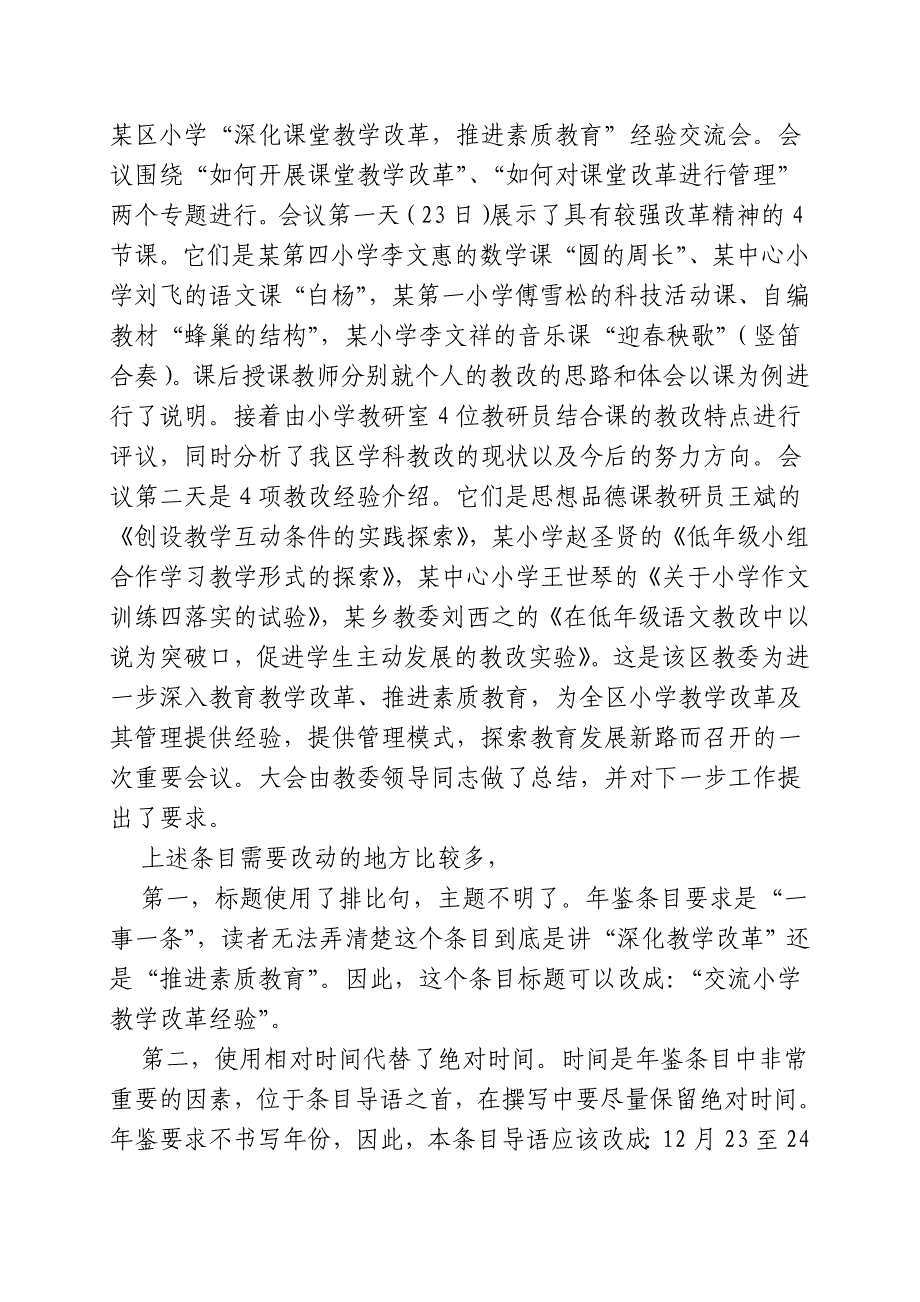 某区小学“深化课堂教学改革，推进素质教育”经验交流会。会
议围绕“如何开展课堂教学改革”、“如何对课堂改革进行管理”
两个专题进行。会议第一天(23日)展示了具有较强改革精神的4
节课。它们是某第四小学李文惠的数学课“圆的周长”、某中心小
学刘飞的语文课“白杨”，某第一小学傅雪松的科技活动课、自编
教材“蜂巢的结构”，某小学李文祥的音乐课“迎春秧歌”(竖笛
合奏)。课后授课教师分别就个人的教改的思路和体会以课为例进
行了说明。接着由小学教研室4位教研员结合课的教改特点进行
评议，同时分析了我区学科教改的现状以及今后的努力方向。会
议第二天是4项教改经验介绍。它们是思想品德课教研员王斌的
《创设教学互动条件的实践探索》，某小学赵圣贤的《低年级小组
合作学习教学形式的探索》，某中心小学王世琴的《关于小学作文
训练四落实的试验》，某乡教委刘西之的《在低年级语文教改中以
说为突破口，促进学生主动发展的教改实验》。这是该区教委为进
一步深入教育教学改革、推进素质教育，为全区小学教学改革及
其管理提供经验，提供管理模式，探索教育发展新路而召开的一
次重要会议。大会由教委领导同志做了总结，并对下一步工作提
出了要求。
上述条目需要改动的地方比较多，
第一，标题使用了排比句，主题不明了。年鉴条目要求是“一
事一条”，读者无法弄清楚这个条目到底是讲“深化教学改革”还
是“推进素质教育”。因此，这个条目标题可以改成：“交流小学
教学改革经验”。
第二，使用相对时间代替了绝对时间。时间是年鉴条目中非常
重要的因素，位于条目导语之首，在撰写中要尽量保留绝对时间。
年鉴要求不书写年份，因此，本条目导语应该改成：12月23至24